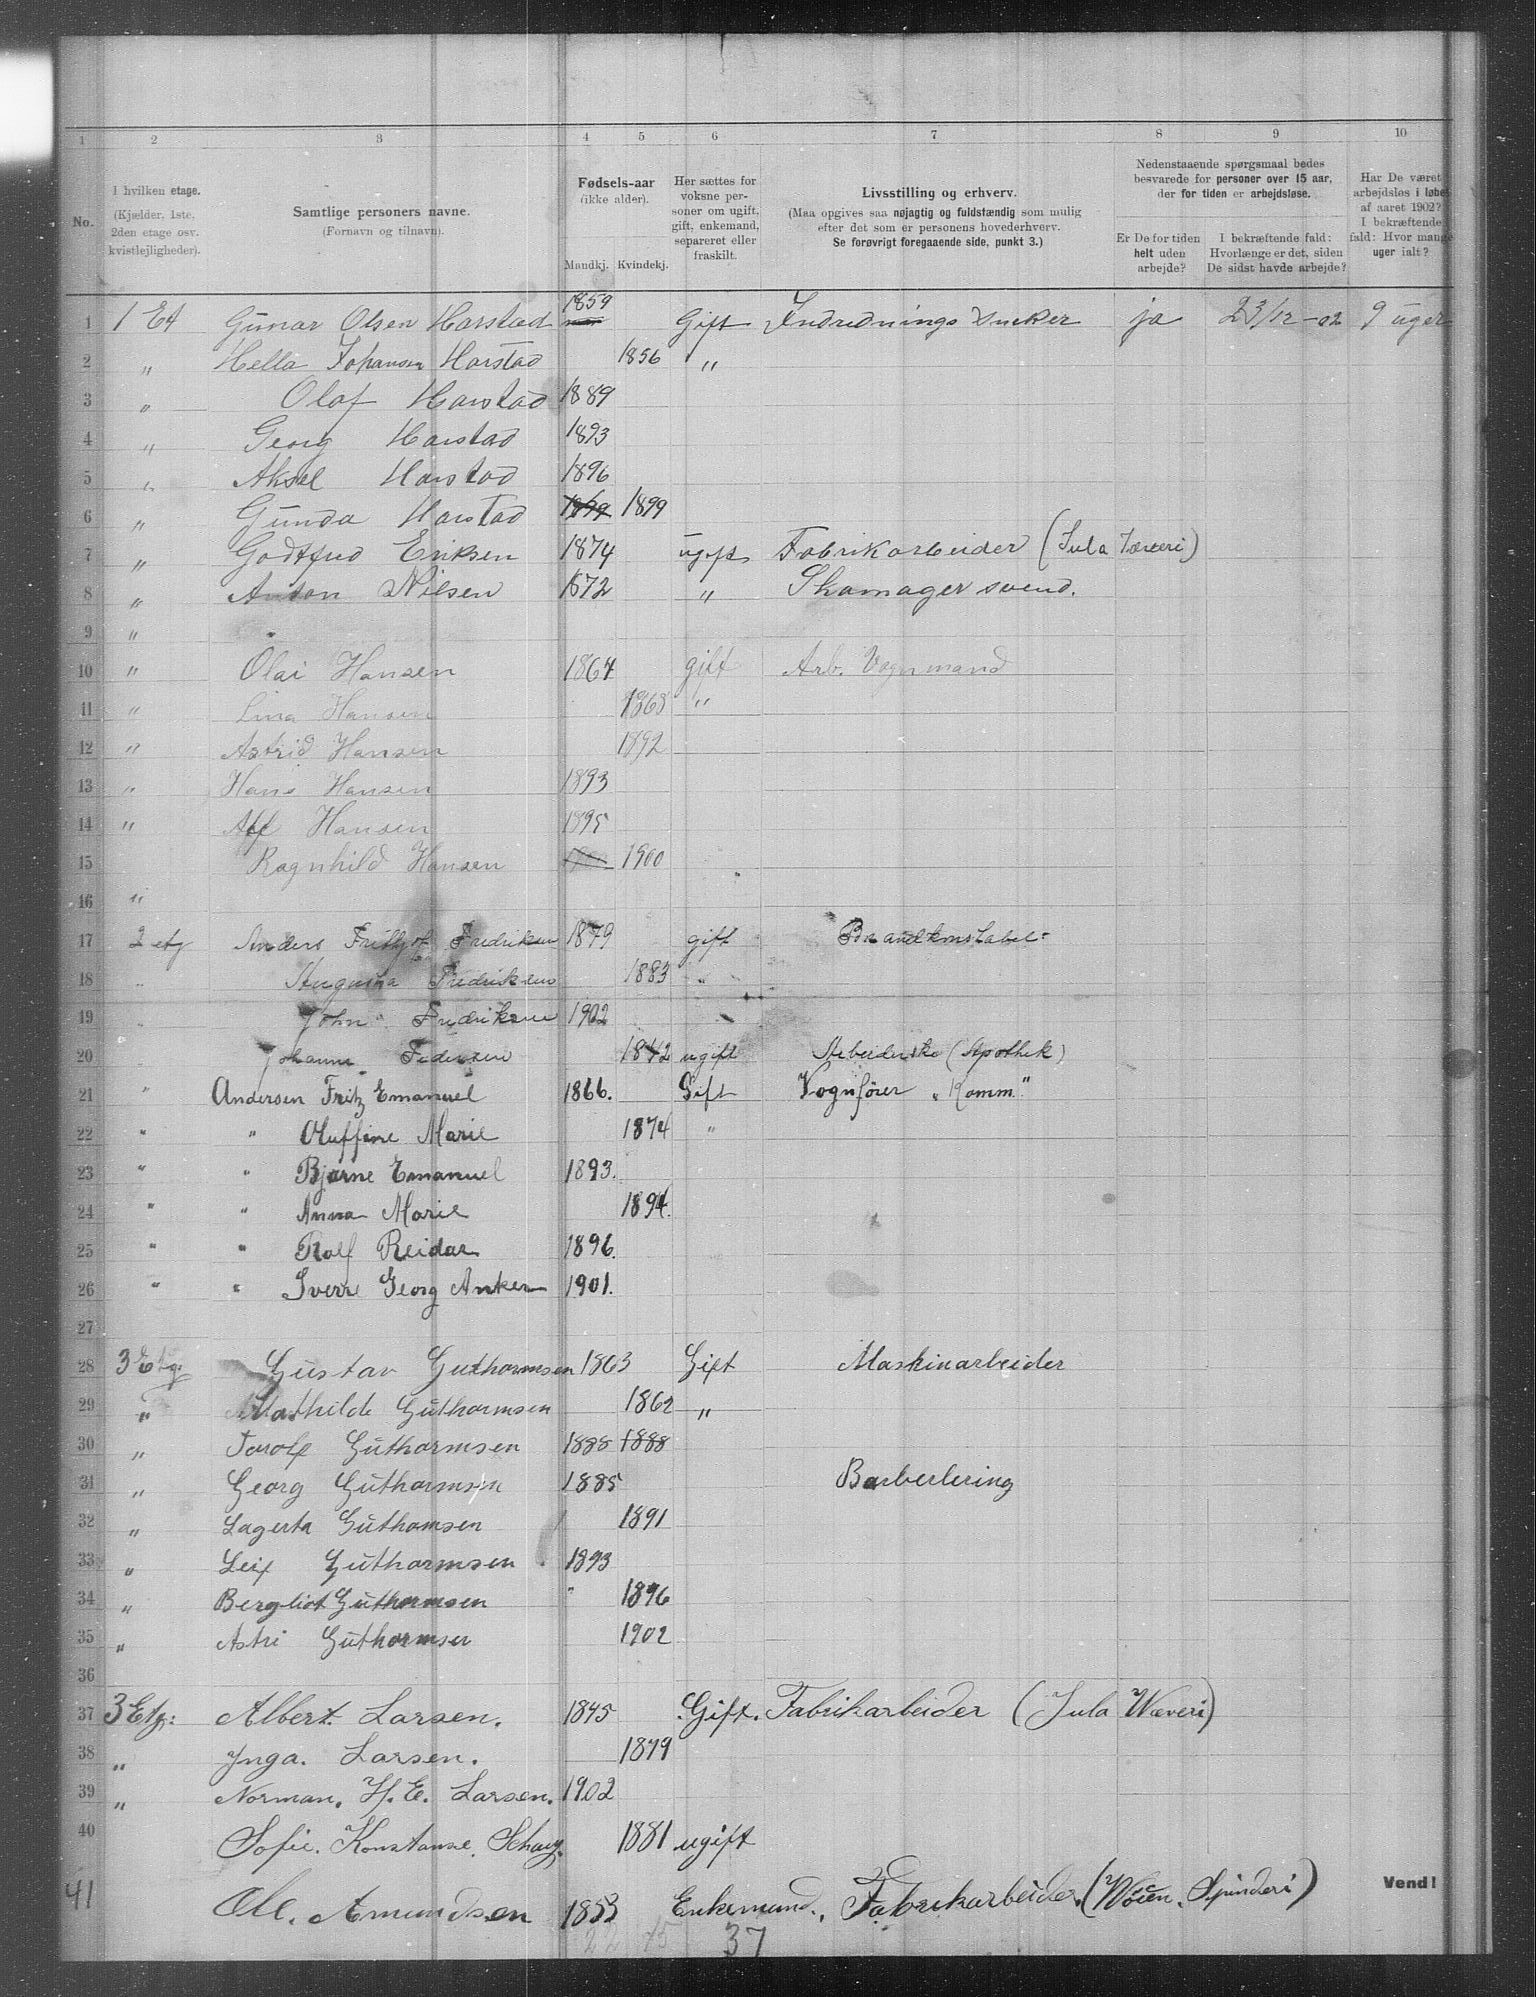 1 2 3 4 5 6 7 8 9 10
No. I hvilken etage. (Kjælder, 1ste, 2den etage osv. kvistlejligheder). Samtlige personers navne. (Fornavn og tilnavn). Fødsels-aar (ikke alder). Mandkj. Kvindekj. Her sættes for voksne personer om ugift, gift, enkemand, separeret eller fraskilt. Livsstilling og erhverv. (Maa opgives saa nøjagtig og fuldstændig som mulig efter det som er personens hovederhverv. Se forøvrigt foregaaende side, punkt 3.) Nedenstaaende spørgsmaal bedes besvarede for personer over 15 aar, der for tiden er arbejdsløse. Er De for tiden helt uden arbejde? I bekræftende fald: Hvorlænge er det, siden De sidst havde arbejde? Har De været arbejdsløs i løbet af aaret 1902? I bekræftende fald: Hvor mange uger ialt?
1 1 Et Gunar Olsen Harstad 1859 Gift Indrednings Sneker ja 23/12-02 9 uger
2 " Hella Johansen Harstad 1856 "
3 " Olaf Harstad 1889
4 " Georg Harstad 1893
5 " Aksel Harstad 1896
6 " Gunda Harstad 1899 1899
7 " Godtfred Eriksen 1874 ugift Fabrikarbeider (Jula Væveri)
8 " Anton Nilsen 1872 " Skomager svend.
9 "
10 " Olai Hansen 1864 gift Arb. Vognmand
11 " Lina Hansen 1868 "
12 " Astrid Hansen 1892
13 " Hans Hansen 1893
14 " Alf Hansen 1895
15 Ragnhild Hansen 1900
16 "
17 2 etg Anders Frithjof Fredriksen 1879 gift Brandkonstabel
18 " Augusta Fredriksen 1883 "
19 " John Fredriksen 1902
20 Johanne Pedersen 1842 ugift Arbeiderske (Apothek)
21 " Andersen Fritz Emanuel 1866. Gift Vognfører "Komm."
22 " " Oluffine Marie 1874 "
23 " " Bjarne Emanuel 1893.
24 " " Anna Marie 1894.
25 " " Rolf Reidar 1896.
26 " " Sverre Georg Anker 1901.
27
28 3 Etg: Gustav Guthormsen 1863 Gift Maskinarbeider
29 " Mathilde Guthormsen 1862 "
30 " Torolf Guthormsen 1888 1888
31 " Georg Guthormsen 1885 Barberlering
32 " Lagerta Guthomsen 1891
33 " Leif Guthormsen 1893
34 " Bergliot Guthormsen " 1896
35 " Astri Guthormsen 1902
36
37 3 Etg: Albert Larsen. 1845 Gift. Fabrikarbeider (Jula Wæveri)
38 " Inga. Larsen. 1879
39 " Norman. H. E. Larsen. 1902
40 Sofie. Konstanse. Schou. 1881 ugift
Vend!
41 Ole. Amundsen 1853 Enkemand., Fabrikarbeider. (Wøien. Spinderi)
22 15 37